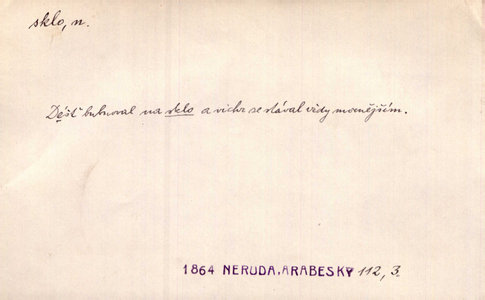 sklo, n.
Déšť bubnoval na sklo a vichr se stával vždy mocnějším.
1864 NERUDA, ARABESKY 112, 3.